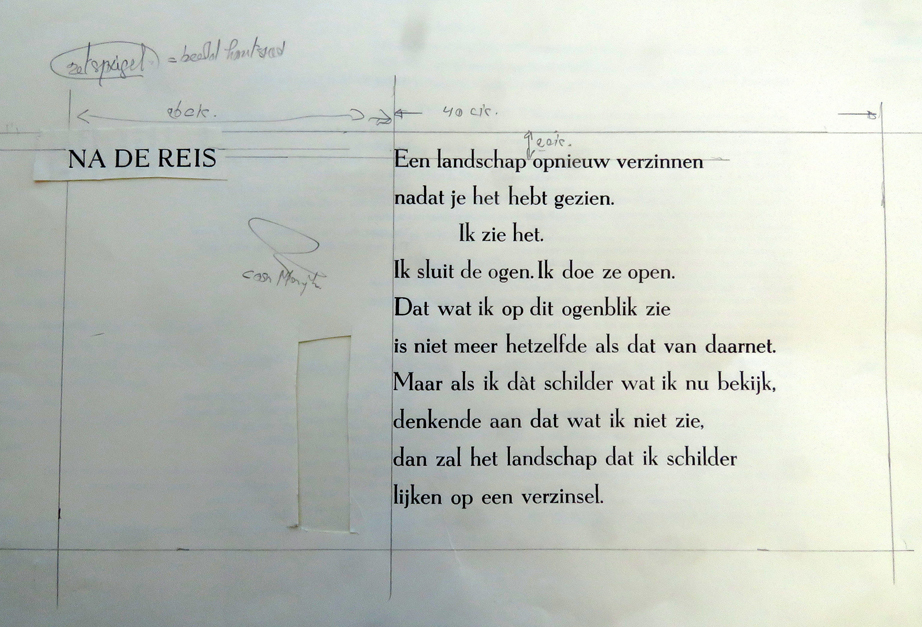 zetspiegel = beeld
40 cic.
NA DE REIS
Een landschap opnieuw verzinnen
nadat je het hebt gezien.
Ik zie het.
Ik sluit de ogen. Ik doe ze open.
Dat wat ik op dit ogenblik zie
is niet meer hetzelfde als dat van daarnet.
Maar als ik dàt schilder wat ik nu bekijk,
denkende aan dat wat ik niet zie,
dan zal het landschap dat ik schilder
lijken op een verzinsel.